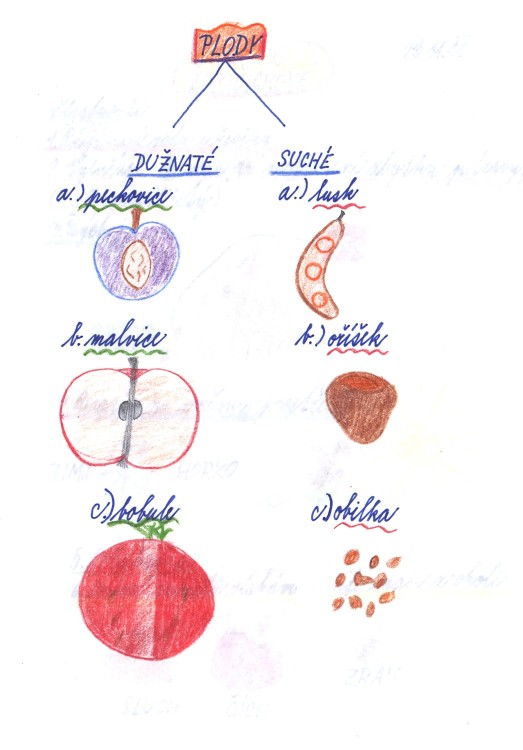 PLODY
DUŽNATÉ
SUCHÉ
a.) peckovice
a.) lusk
b. malvice
b.) oříšek
c.) bobule
c.) obilka